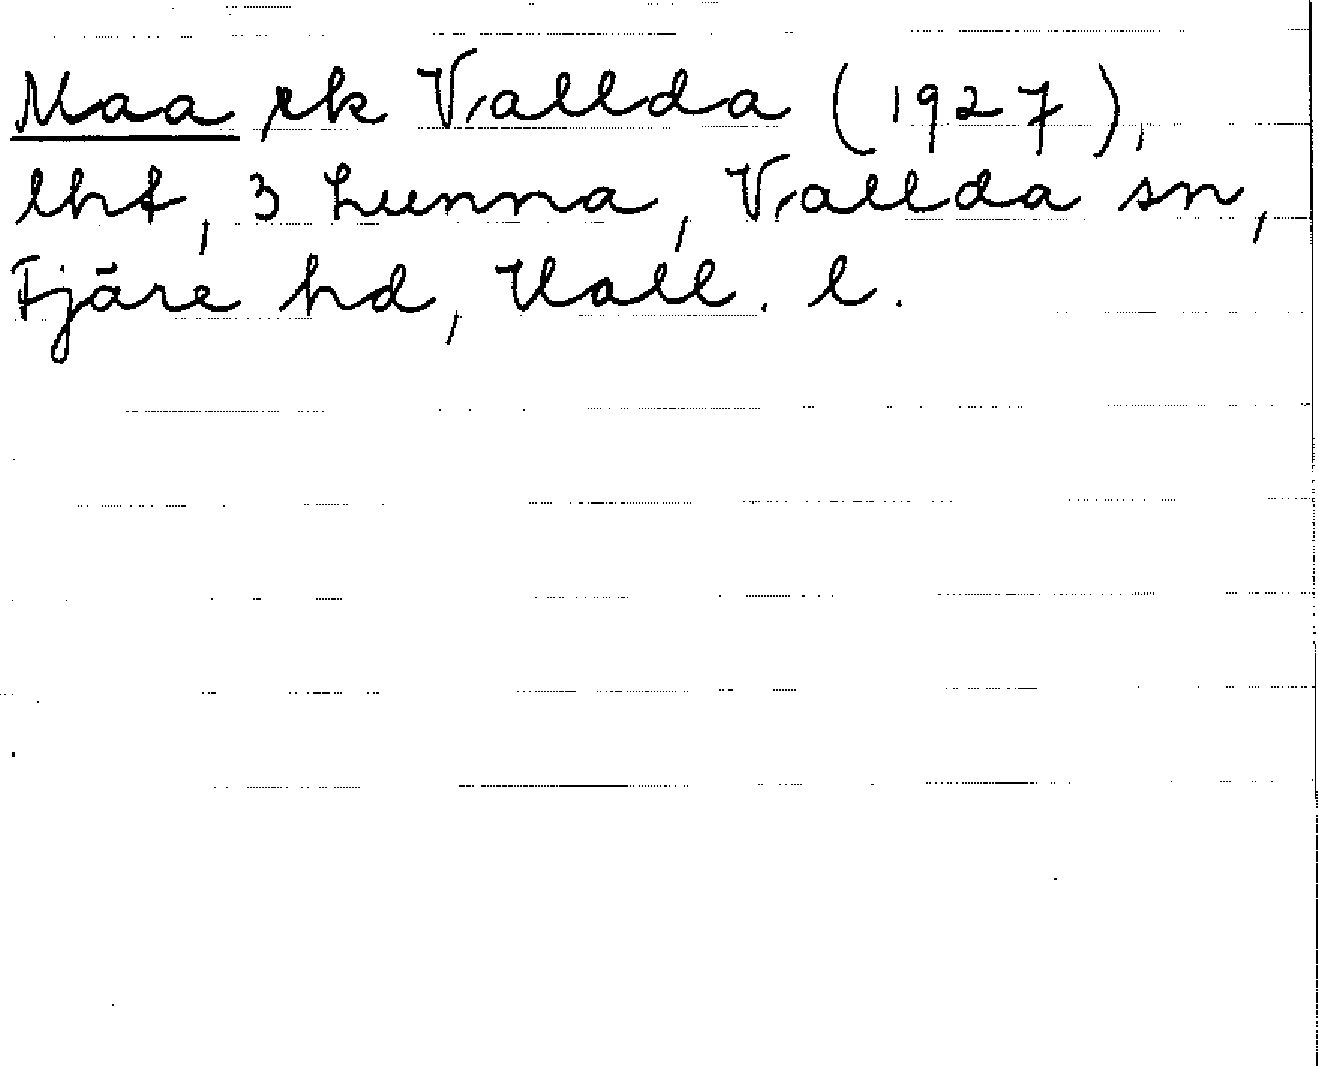 Maa rk Vallda (1927),
lht, 3 Lunna, Vallda sn,
Fjäre hd, Hall. l.